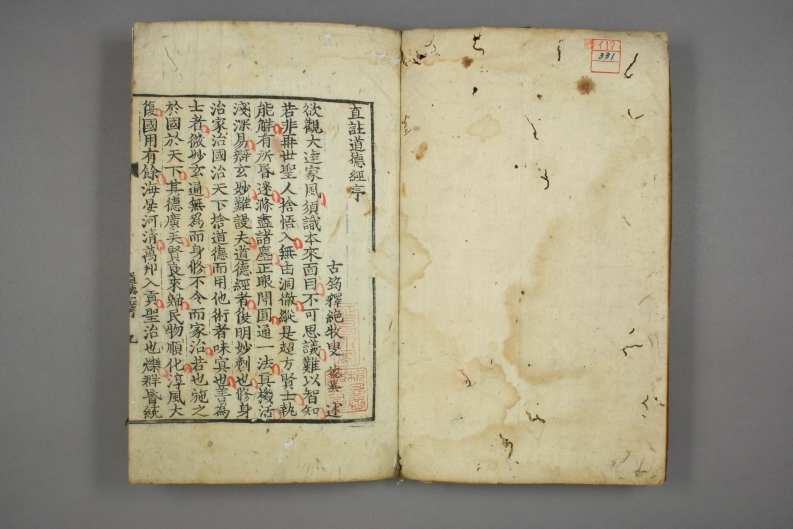 直註道德經序
古筠釋絕牧叟 述
欲觀大達家風須識本來面目不可思議難以智知
若非再世聖人捨悟入無由洞徹縱是超方賢士執
能解有所昏迷滌盡諸塵正眼開圓通一法真機活
淺深易辯玄妙難謾夫道德經者復明妙剳也修身
治家治國治天下捨道德而用他術者味真也善為
士者微妙玄通無為而身修不令而家治若也施之
於國於天下其德廣矣賢良來歸民物順化淳風大
復國用有餘海晏河清萬邦入貢聖治也爍群昏統
九
331